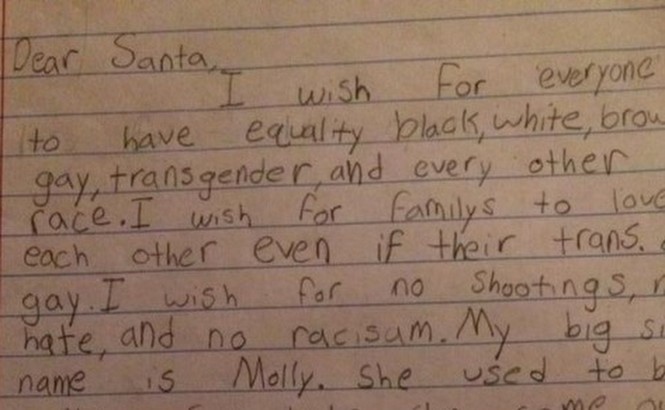 Dear Santa,
I wish for everyone
to have equality black, white,
gay, transgender, and every other
race. I wish for familys to
each other even if their trans.
gay. I wish for no shootings,
hate, and no racisam. My big
name is Molly. She used to